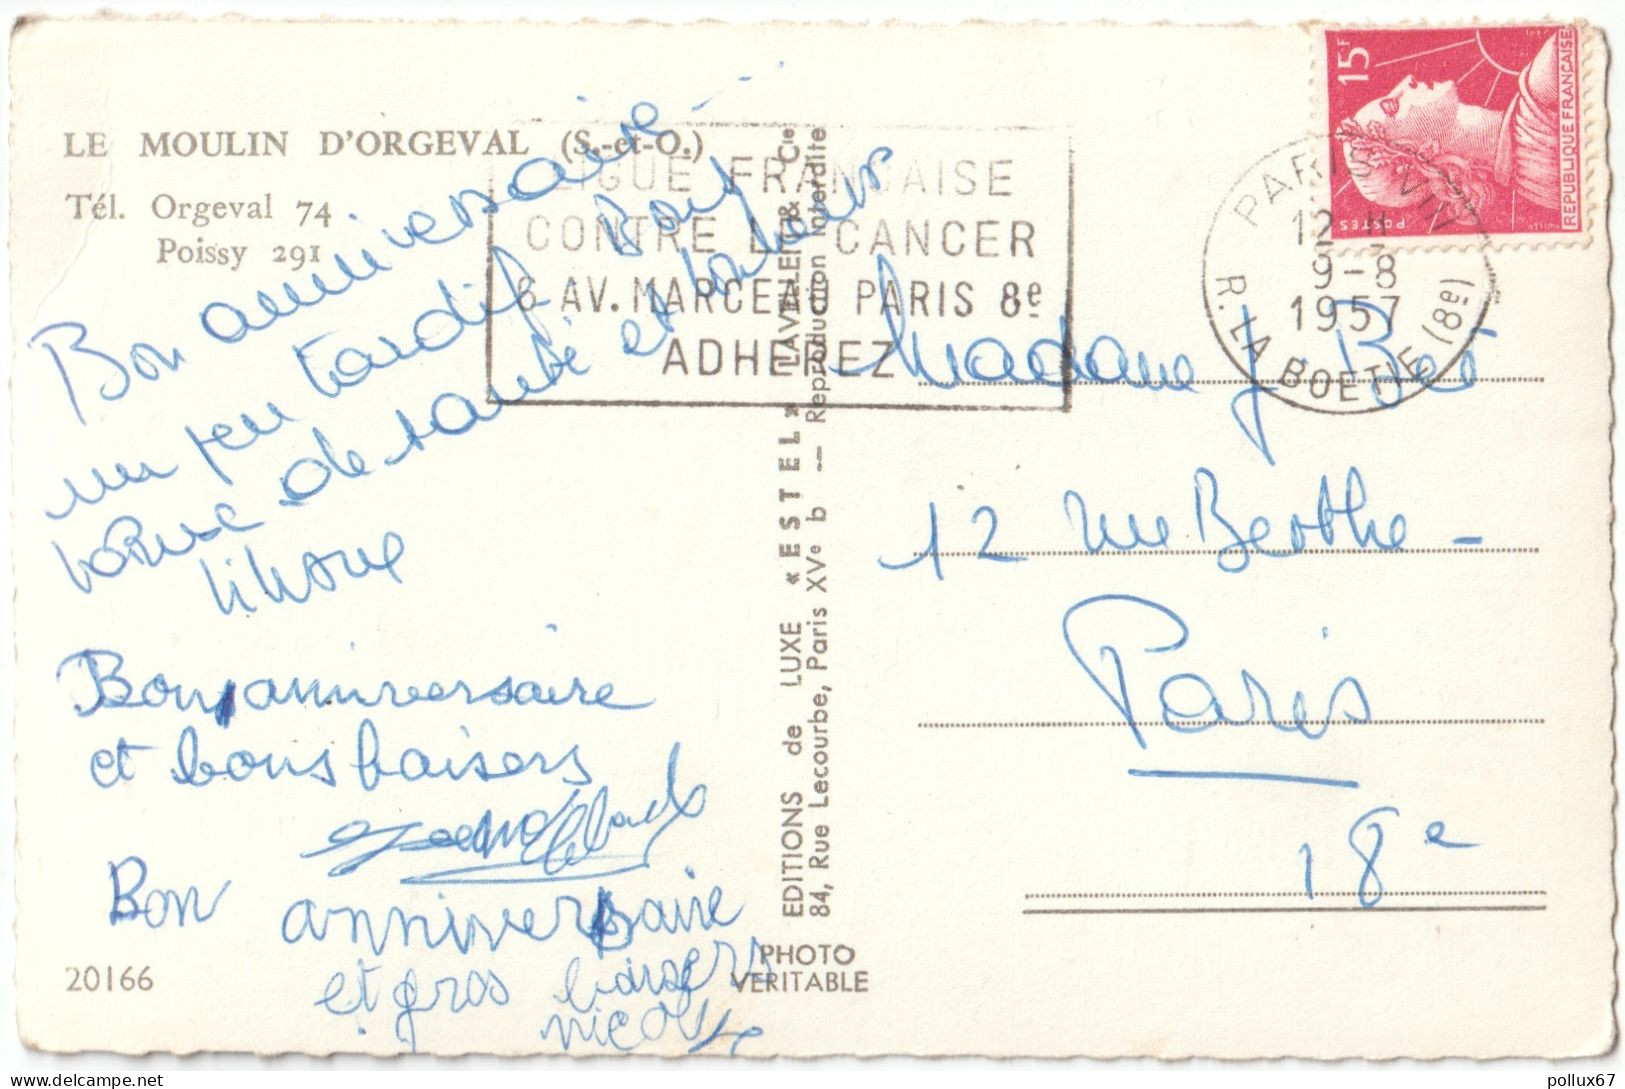 LE MOULIN D'ORGEVAL (S.-et-O.)
Tél. Orgeval 74
Poissy 291
Bon anniversaire
un peu tardif. Bonne
de santé et bonheur
Bon anniversaire
et bons baisers
Bon anniversaire
et gros baisers
nicole
20166
LIGUE FRANÇAISE
CONTRE LE CANCER
6 AV. MARCEAU PARIS 8e
ADHEREZ
EDITIONS de LUXE « ESTEL » LAVELLE & Cie
84, Rue Lecourbe, Paris XVe b — Reproduction Interdite
PHOTO
VERITABLE
15F
REPUBLIQUE FRANÇAISE
POSTES
PARIS VIII
12 H
9-8
1957
R. LA BOETIE (8e)
Madame J
12 rue Berthe -
Paris
18e
delcampe.net
pollux67